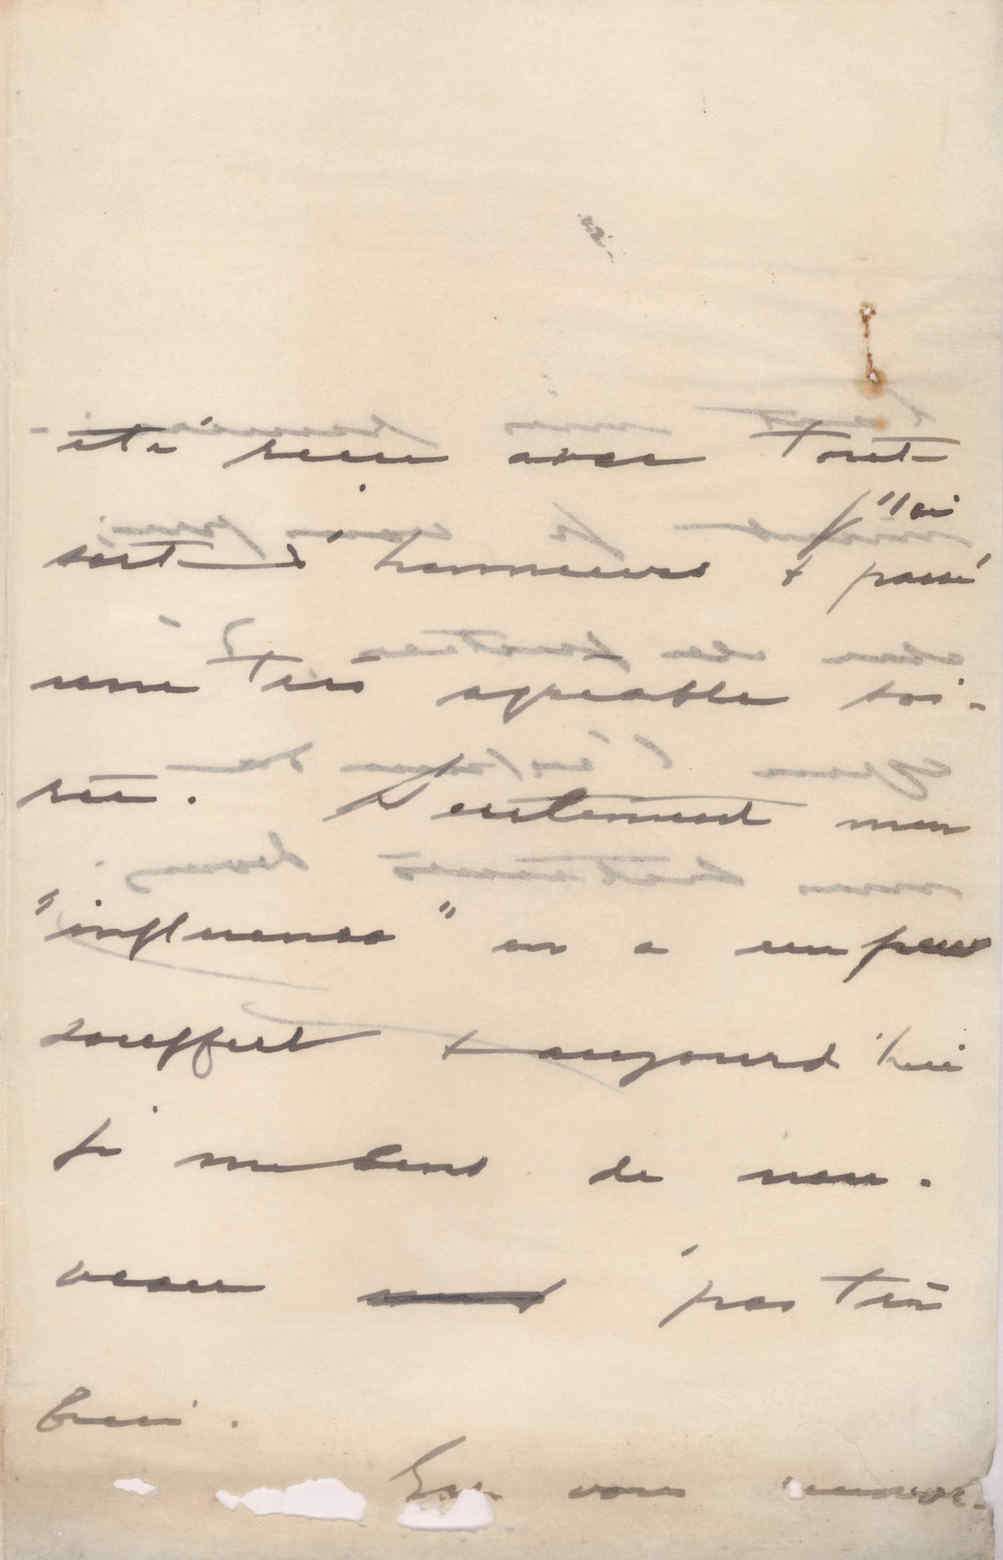 été reçue avec toute
sorte d'honneurs & j'ai passé
une très agréable soi-
rée. Seulement mon
"influenza" en a un peu
souffert & aujourd'hui
je me sens de nou-
veau pas très
bien.
En vous